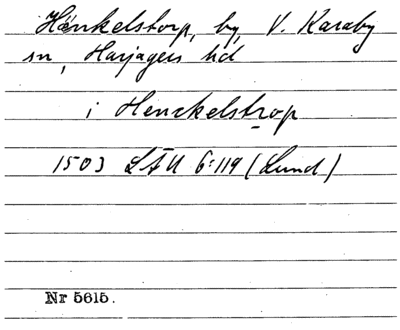 Hänkelstorp, by, V. Karaby
sn, Harjagers hd
i Henckelstrop
1503 LÄU 6:119 (Lund)
Nr 5615.